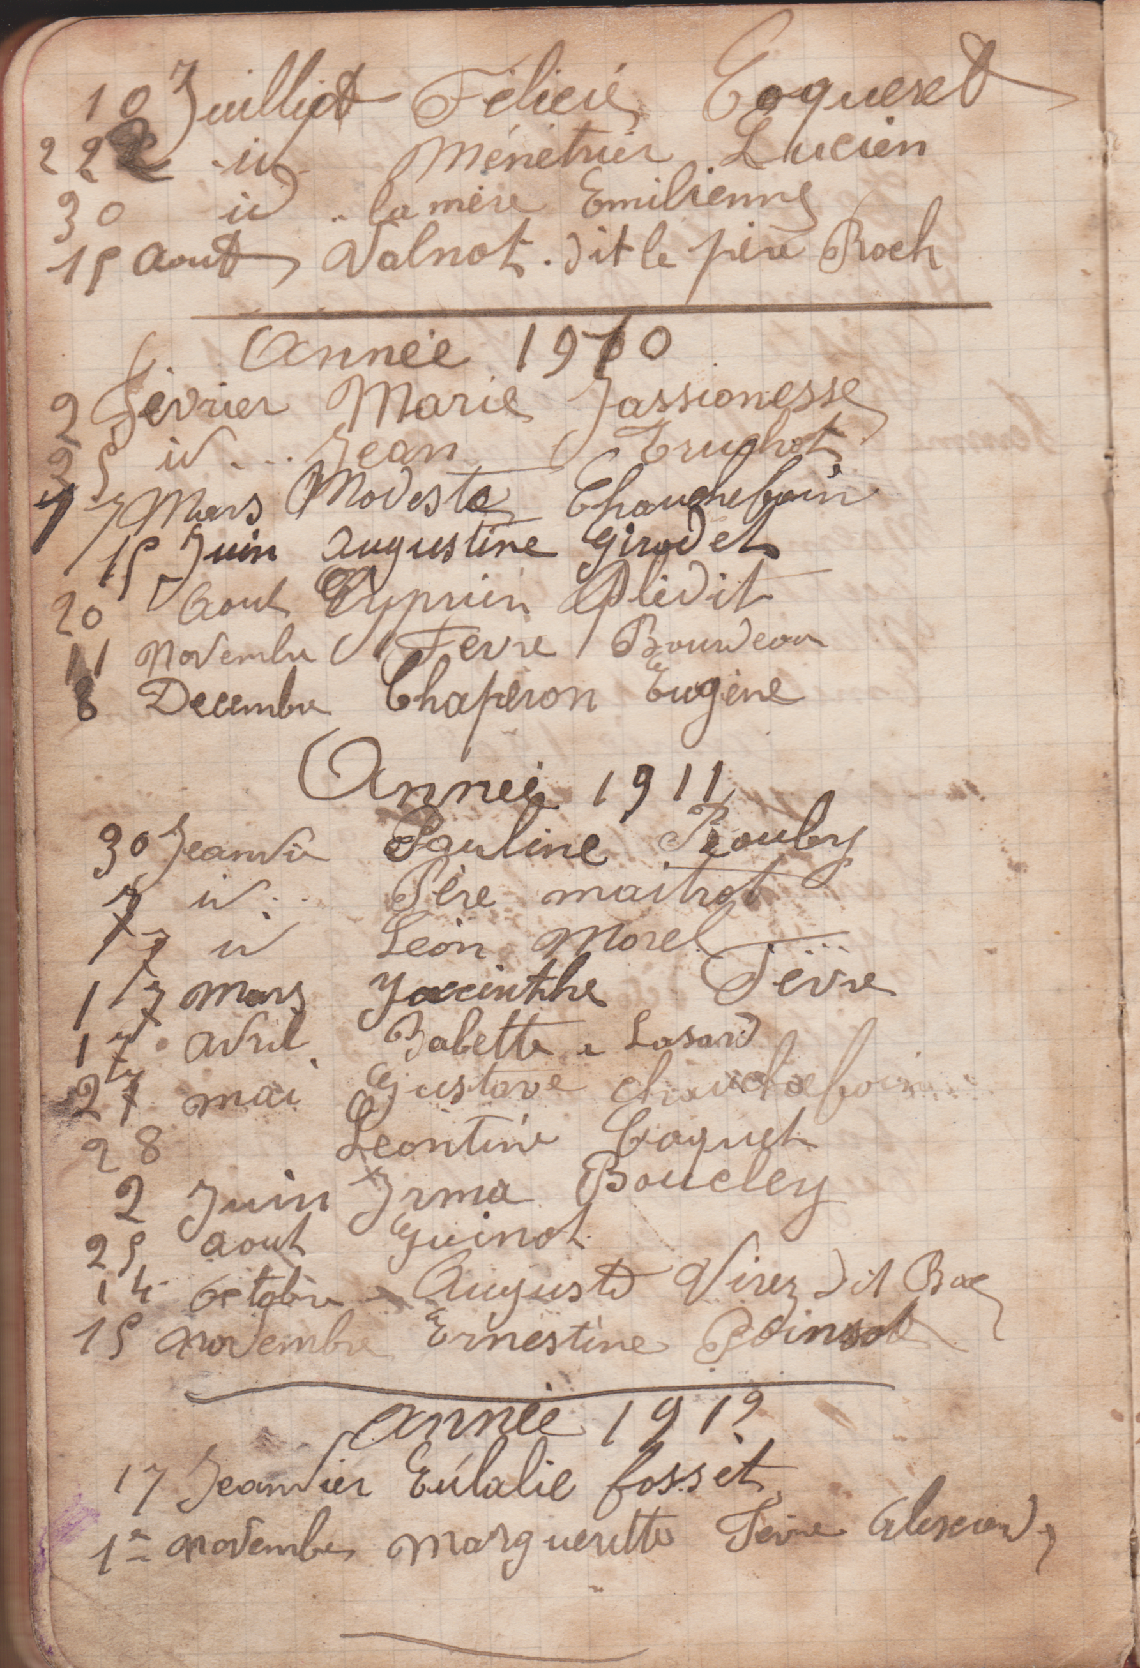 10 Juilliet Félicie Coqueret
22 id Ménétrier Lucien
30 id la mère Emilienne
15 aout Valnot. dit le père Roch
Année 1910
2 Février Marie Jassionesse
25 id... Jean Truchot
7 Mars Modeste Chaucheboin
15 Juin Augustine Girodet
20 Aout Cyprien Plédit
11 Novembre Fevre Bourdeau
8 Decembre Chaperon Eugène
Année 1911
30 Jeanvie Pauline Rouby
7 id.. Père maitrot
17 id Léon Morel
17 mars Yacinthe Fèvre
17 Avril Babette Lasard
27 mai Gustave Chaucheboin
28 Leontine Coquet
2 Juin Irma Boucley
25 aout Guinot
14 Octobre Auguste Virez dit Bac
15 novembre Ernestine Poinsot
Année 1912
17 Jeanvier Eulalie fosset
1er novembre Margueritte Fèvre